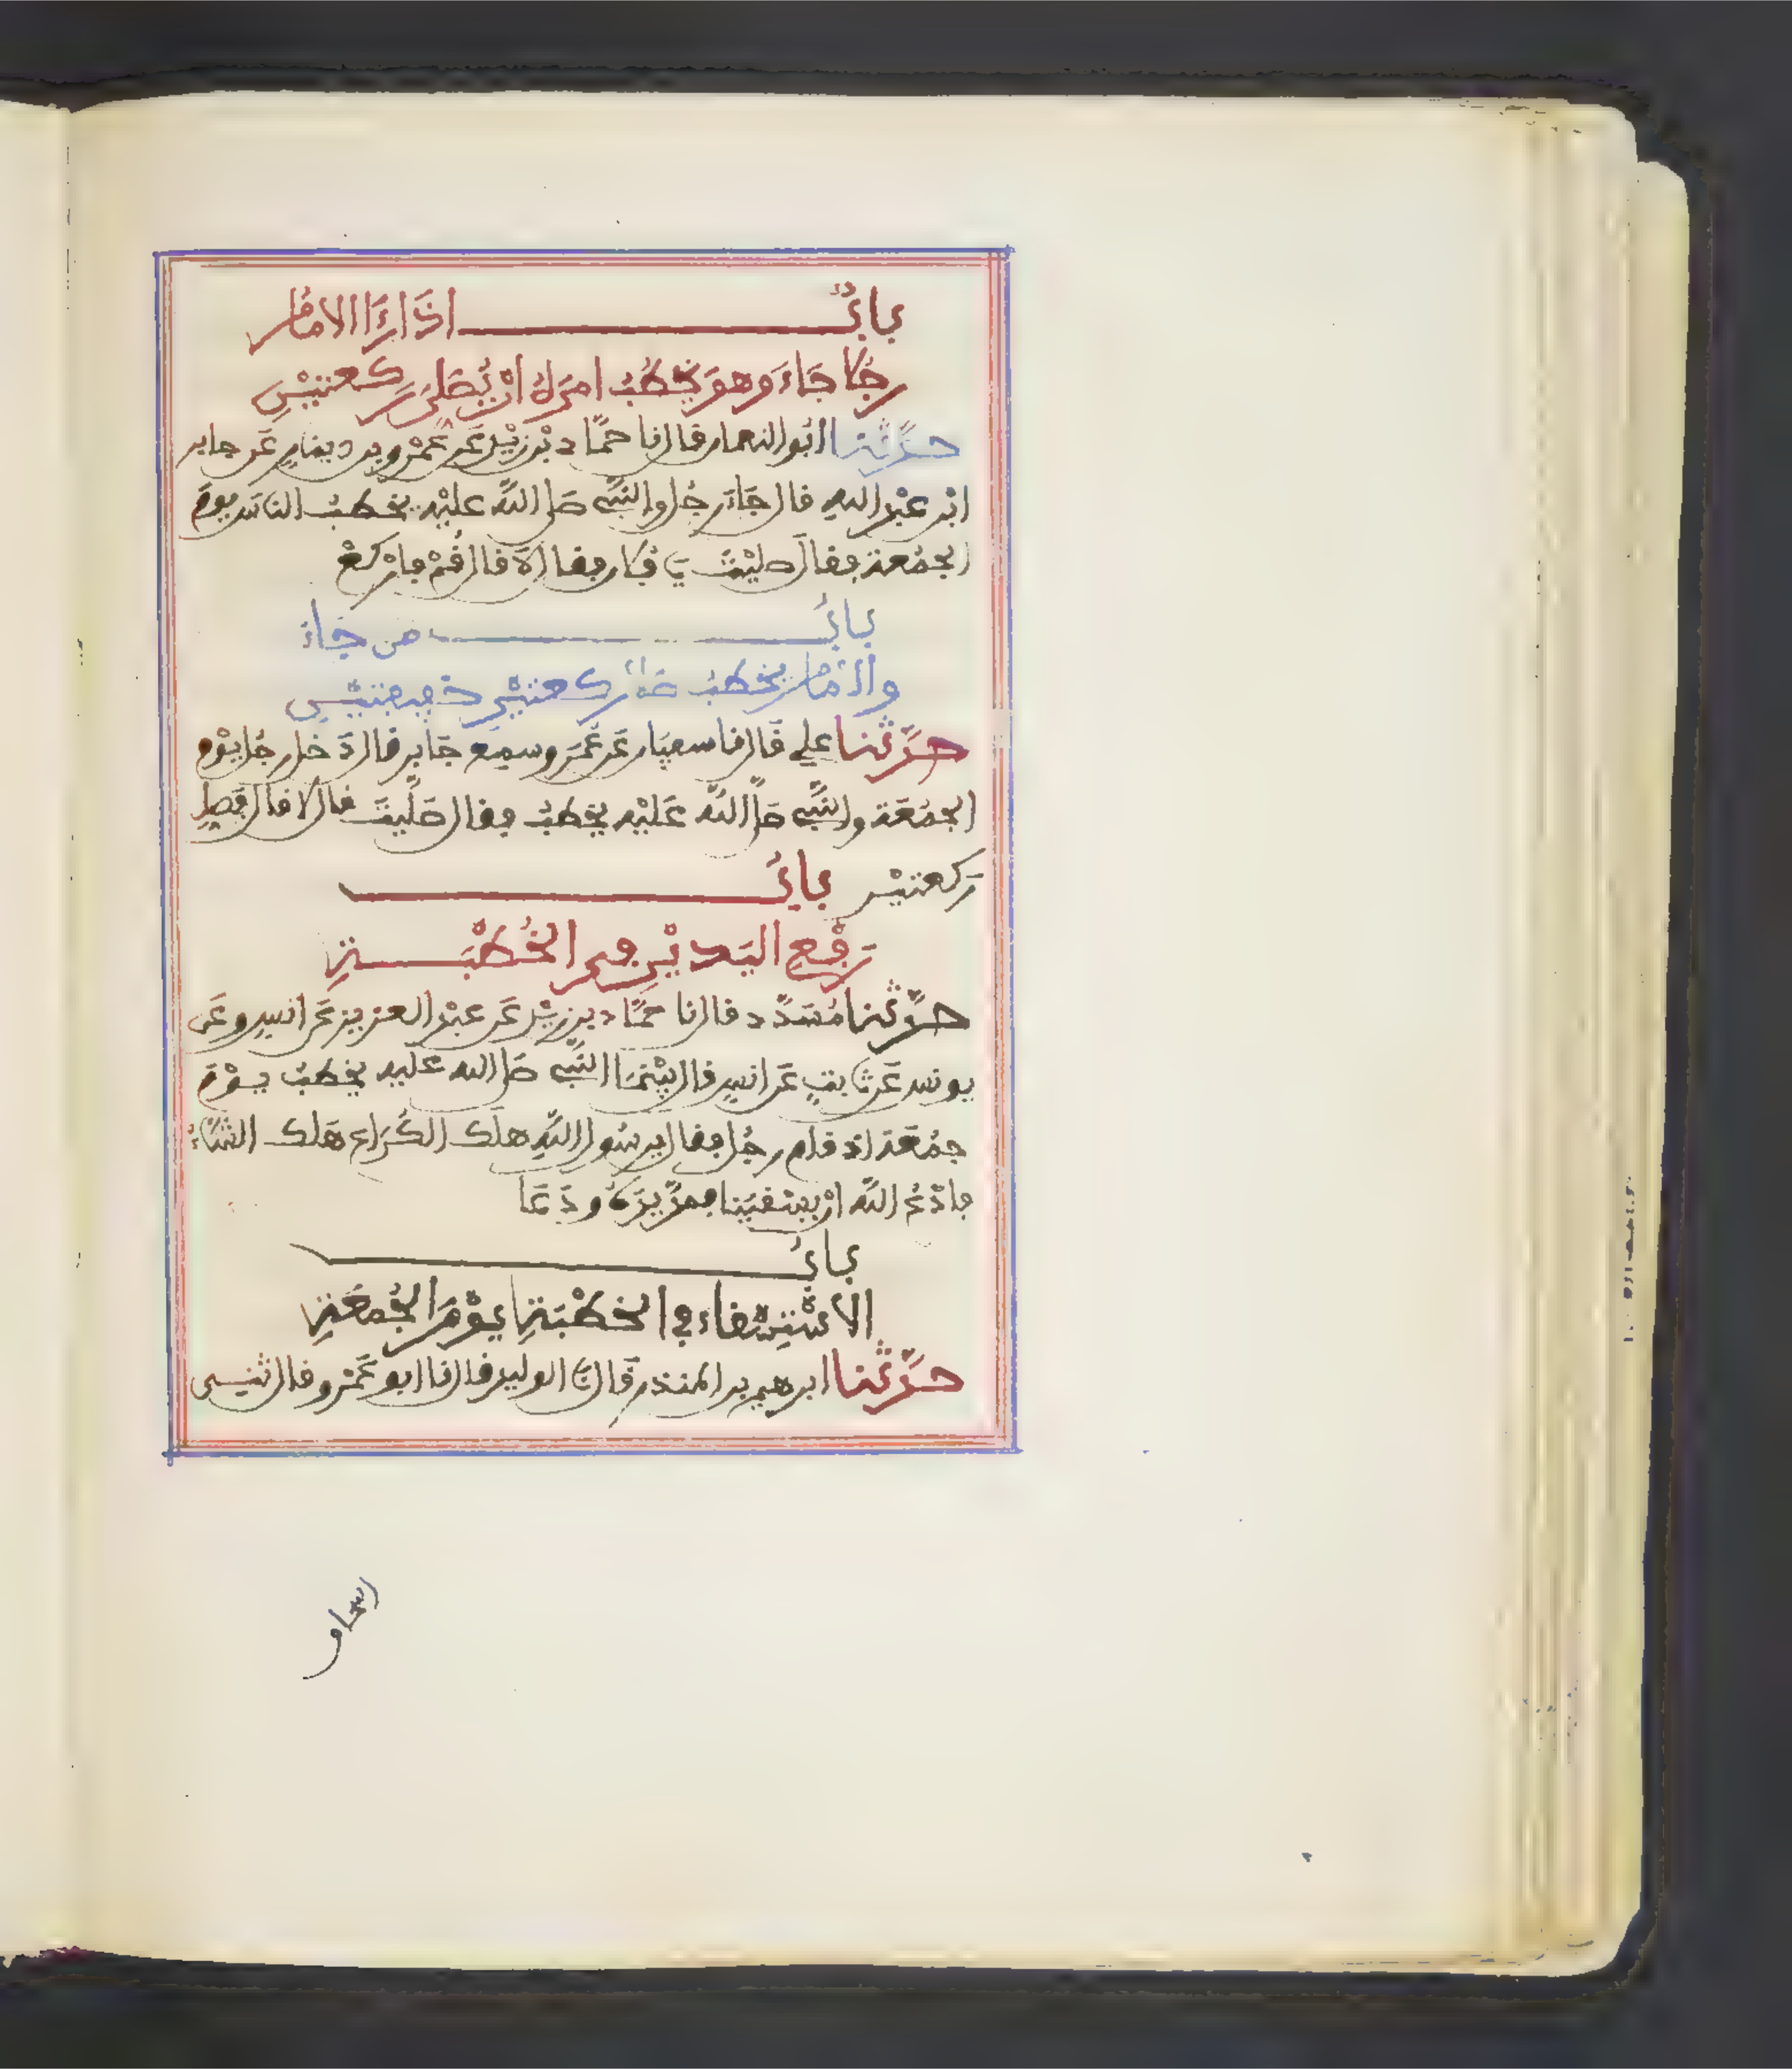 بَابٌ اذَا رَءَا الامَامُ
رجُلا جَاءَ وهوَ يخطُبُ امرَهُ انْ يُصَلىَ ركعتيْنِ
حدَّثنا ابُو النعمان قال نا حمَّاد بْن زيْد عَن عَمْرو بن دينارٍ عَن جابر
ابْن عبْد اللهِ قال جَاءَ رجُل والنبَّي صَلى اللهُ عليْهِ يخطبُ الناسَ يومَ
الجمُعة فقالَ صليْتَ يَا فُلان فقال لَا قال قُمْ فارْكعْ
بابُ من جَاءَ
والامَام يخْطبُ صَلى ركعتيْنِ خفيفتيْنِ
حدَّثنا علي قَال نا سفيَان عَن عَمْرو سمِعَ جَابر قال دَخل رجُل يوْم
الجمُعَة والنبَّي صَلى اللهُ عَليْهِ يخْطبُ فقال صَلَّيتَ قال لا قال فصَلِ
رَكعتيْن بابُ
رَفْعِ اليَديْنِ في الخُطْبَةِ
حدَّثنا مُسَدَّد قال نا حمَّاد بن زيْد عَن عبْد العزيز عَن انسٍ وعَن
يونس عَن ثابتٍ عَن انسٍ قال بيْنمَا النبَّي صَلى الله عليه يخطبُ يوْمَ
جمُعَة اذ قام رجُل فقال يرسُول اللهِ هلَك الكُرَاع هَلك الشَّاءُ
فادْعُ اللهَ انْ يسْقيَنا فمدَّ يدَهُ ودَعَا
بابُ
الاسْتِسْقاء في الخطْبَةِ يوْمَ الجُمعَةِ
حدَّثنا ابرهيم بن المنذر قَال نَا الوليد قال نا ابو عَمْرو قال ثنى
اسحاو